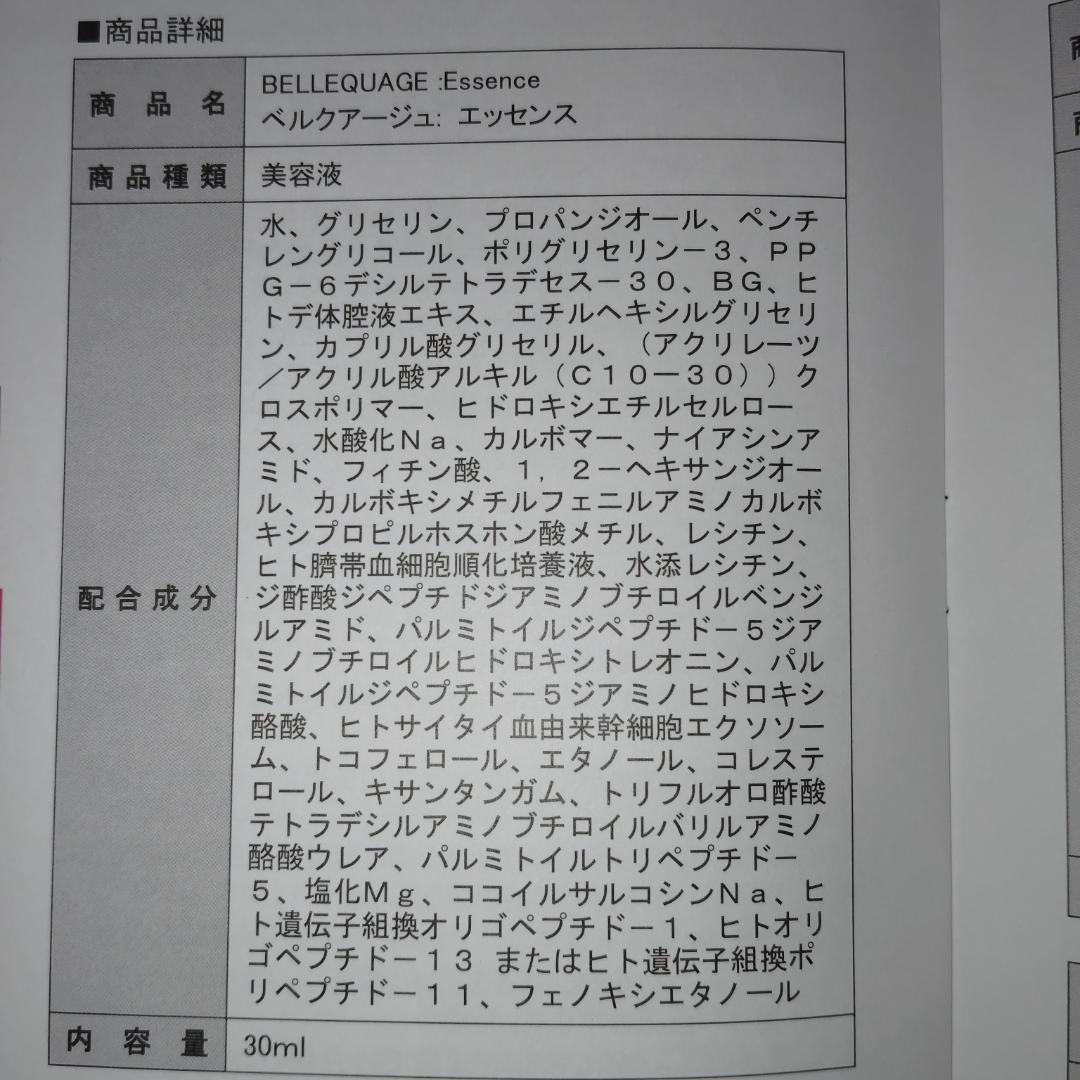 ■商品詳細
商品名
BELLEQUAGE :Essence
ベルクアージュ: エッセンス
商品種類
美容液
配合成分
水、グリセリン、プロパンジオール、ペンチ
レングリコール、ポリグリセリン－３、ＰＰ
Ｇ－６デシルテトラデセス－３０、ＢＧ、ヒ
トデ体腔液エキス、エチルヘキシルグリセリ
ン、カプリル酸グリセリル、（アクリレーツ
／アクリル酸アルキル（Ｃ１０ー３０））ク
ロスポリマー、ヒドロキシエチルセルロー
ス、水酸化Ｎａ、カルボマー、ナイアシンア
ミド、フィチン酸、１，２－ヘキサンジオー
ル、カルボキシメチルフェニルアミノカルボ
キシプロピルホスホン酸メチル、レシチン、
ヒト臍帯血細胞順化培養液、水添レシチン、
ジ酢酸ジペプチドジアミノブチロイルベンジ
ルアミド、パルミトイルジペプチド－５ジア
ミノブチロイルヒドロキシトレオニン、パル
ミトイルジペプチド－５ジアミノヒドロキシ
酪酸、ヒトサイタイ血由来幹細胞エクソソー
ム、トコフェロール、エタノール、コレステ
ロール、キサンタンガム、トリフルオロ酢酸
テトラデシルアミノブチロイルバリルアミノ
酪酸ウレア、パルミトイルトリペプチド－
５、塩化Ｍｇ、ココイルサルコシンＮａ、ヒ
ト遺伝子組換オリゴペプチド－１、ヒトオリ
ゴペプチド－１３ またはヒト遺伝子組換ポ
リペプチド－１１、フェノキシエタノール
内容量
30ml